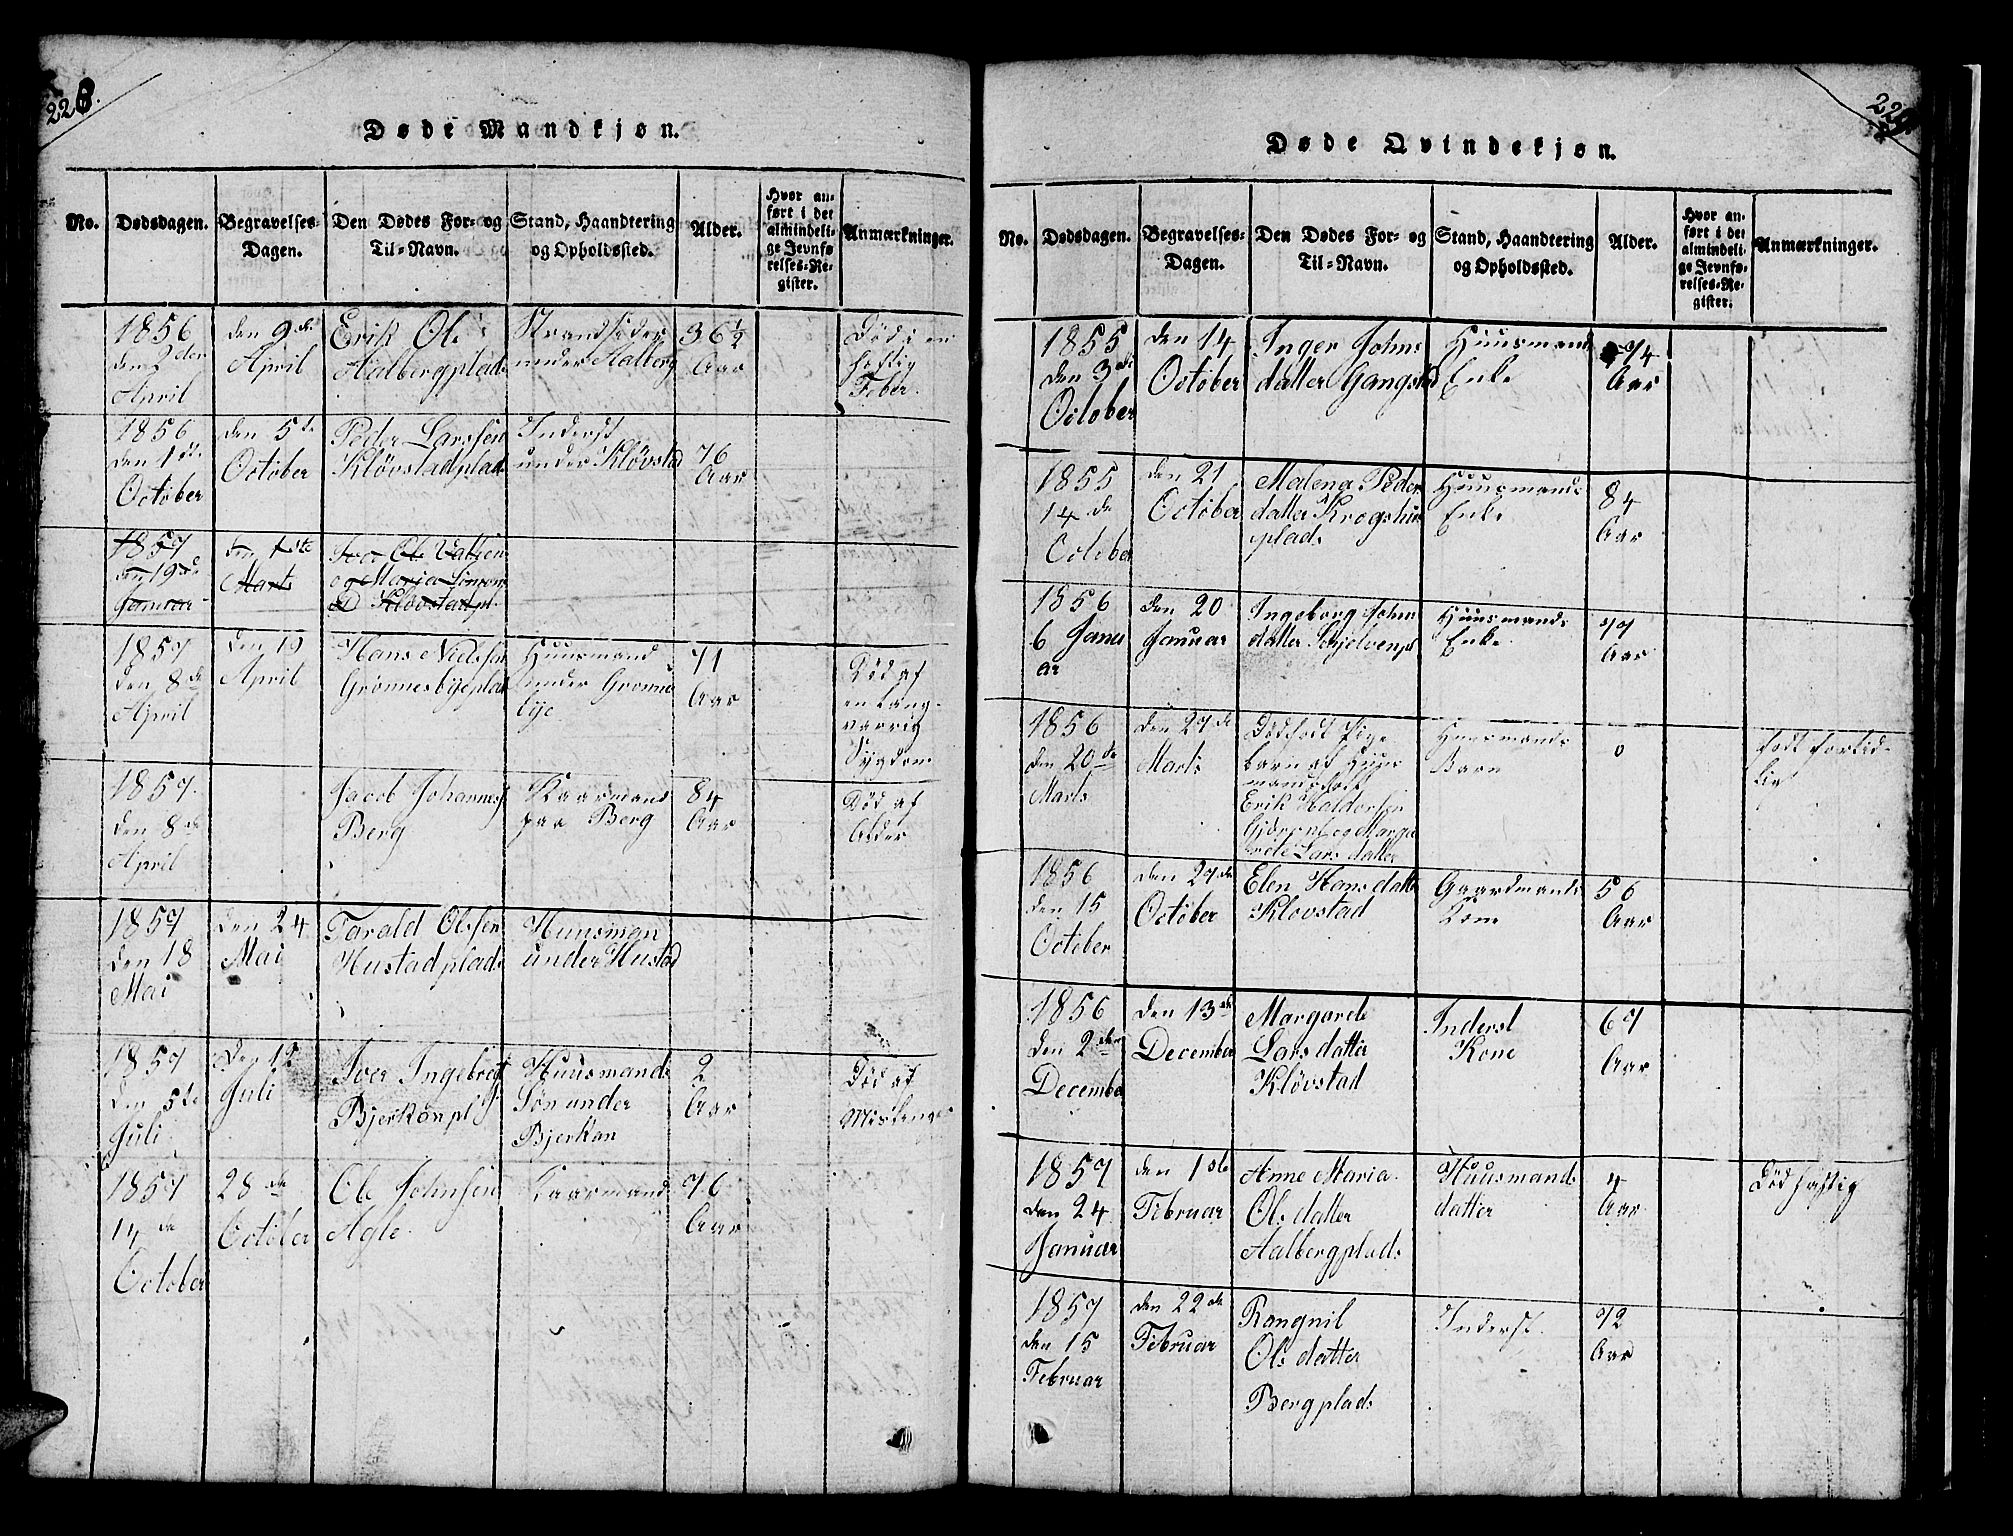 228.
Døde Mandkjøn.
No.
Dødsdagen.
Begravelses-
Dagen.
Den Dødes For- og
Til-Navn.
Stand, Haandtering
og Opholdssted.
Alder.
Hvor an-
ført i det
almindeli-
ge Jevnfø-
relses-Re-
gister.
Anmærkninger.
1856
den 2den
April
den 9de
April
Erik Ols
Aalbergplads
Strandsider
under Aalberg
36 1/2
Aar
Død i en
heftig
Feber.
1856
den 1ste
October
den 5te
October
Peder Larssen
Kløvstadplads
Inderst
under Kløvstad
76
Aar
1857
den 19de
Januar
den 1ste
Marts
Iver Ols
og Maria Simons
D Kløvstadpl.
1857
den 8de
April
den 19
April
Hans Nielssen
Grønnesbyeplads
Huusmand
under Grønnes
bye
71
Aar
Død af
en Lang-
varrig
Sygdom
1857.
den 8de
April
Jacob Johannes
Berg
Kaarmand
paa Berg
84
Aar
Død af
Alder
1857
den 18
Mai
den 24
Mai
Tarald Olssen
Hustadplads
Huusman
under Hustad
1857
den 5te
Juli
Den 12
Juli
Iver Ingebregts
Bjerkanpl
Huusmands
Søn under
Bjerkan
2
Aar
Død af
1857
14de
October
28de
October
Ole Johnsen
Agle.
Kaarmand
76
Aar
229
Døde Qvindekjøn.
No.
Dødsdagen.
Begravelses-
Dagen.
Den Dødes For- og
Til-Navn.
Stand, Haandtering
og Opholdssted.
Alder.
Hvor an-
ført i det
almindeli-
ge Jevnfø-
relses-Re-
gister.
Anmærkninger.
1855
den 3de
October
den 14
October
Inger Johns
datter Gangstad
Huusmands
Enke
74
Aar
1855
14de
October
den 21
October
Malena Peders
datter Krogshus
plads
Huusmands
Enke
84
Aar
1856
6 Janu
ar
den 20
Januar
Ingeborg Johns
datter Schjelvenpl
Huusmands
Enke
77
Aar
1856
den 20de
Marts
den 27de
Marts
Dødfødt Pige
barn af Huus
mandsfolk
Erik Haldorsen
og Marga
rete Larsdatter
Huusmands
Barn
0
født fortid
lig
1856
den 15
October
den 27de
October
Elen Hansdatter
Kløvstad
Gaardmands
Kone
56
Aar
1856
den 2den
December
den 13de
December
Margarete
Larsdatter
Kløvstad
Inderst
Kone
67
Aar
1857
den 24
Januar
den 1ste
Februar
Anne Maria
Olsdatter
Aalbergplads
Huusmands
datter
4
Aar
Død hastig
1857
den 15
Februar
den 22de
Februar
Rangnil
Olsdatter
Bergplads
Inderst.
72
Aar